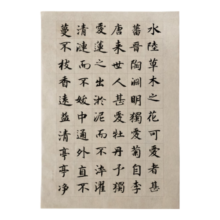 水陸草木之花可愛者甚
蕃晉陶淵明獨愛菊自李
唐来世人甚愛牡丹予獨
愛蓮之出淤泥而不染濯
清漣而不妖中通外直不
蔓不枝香遠益清亭亭净